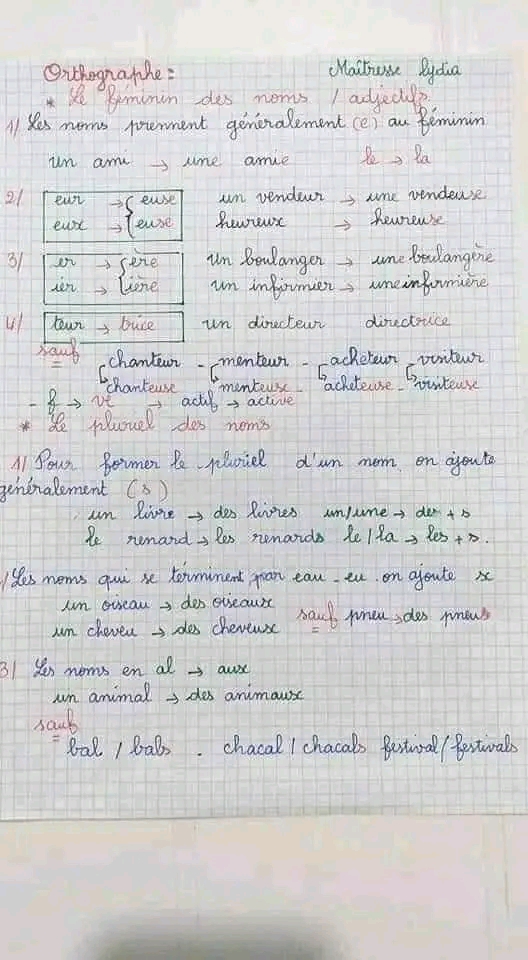 Orthographe : Maîtresse Lydia
* Le féminin des noms / adjectifs.
1/ Les noms prennent généralement (e) au féminin
un ami → une amie le → la
2/ eur → euse un vendeur → une vendeuse
eux → euse heureux → heureuse
3/ er → ère un boulanger → une boulangère
ier → ière un infirmier → une infirmière
4/ teur → trice un directeur directrice
sauf = chanteur - menteur - acheteur - visiteur
chanteuse menteuse - acheteuse - visiteuse
- f → ve → actif → active
* Le pluriel des noms
1/ Pour former le pluriel d'un nom, on ajoute
généralement (s)
un livre → des livres un/une → des + s
le renard → les renards le/la → les + s.
/ Les noms qui se terminent par eau - eu . on ajoute x
un oiseau → des oiseaux
un cheveu → des cheveux sauf = pneu → des pneus
3/ Les noms en al → aux
un animal → des animaux
sauf
= bal / bals . chacal / chacals festival / festivals